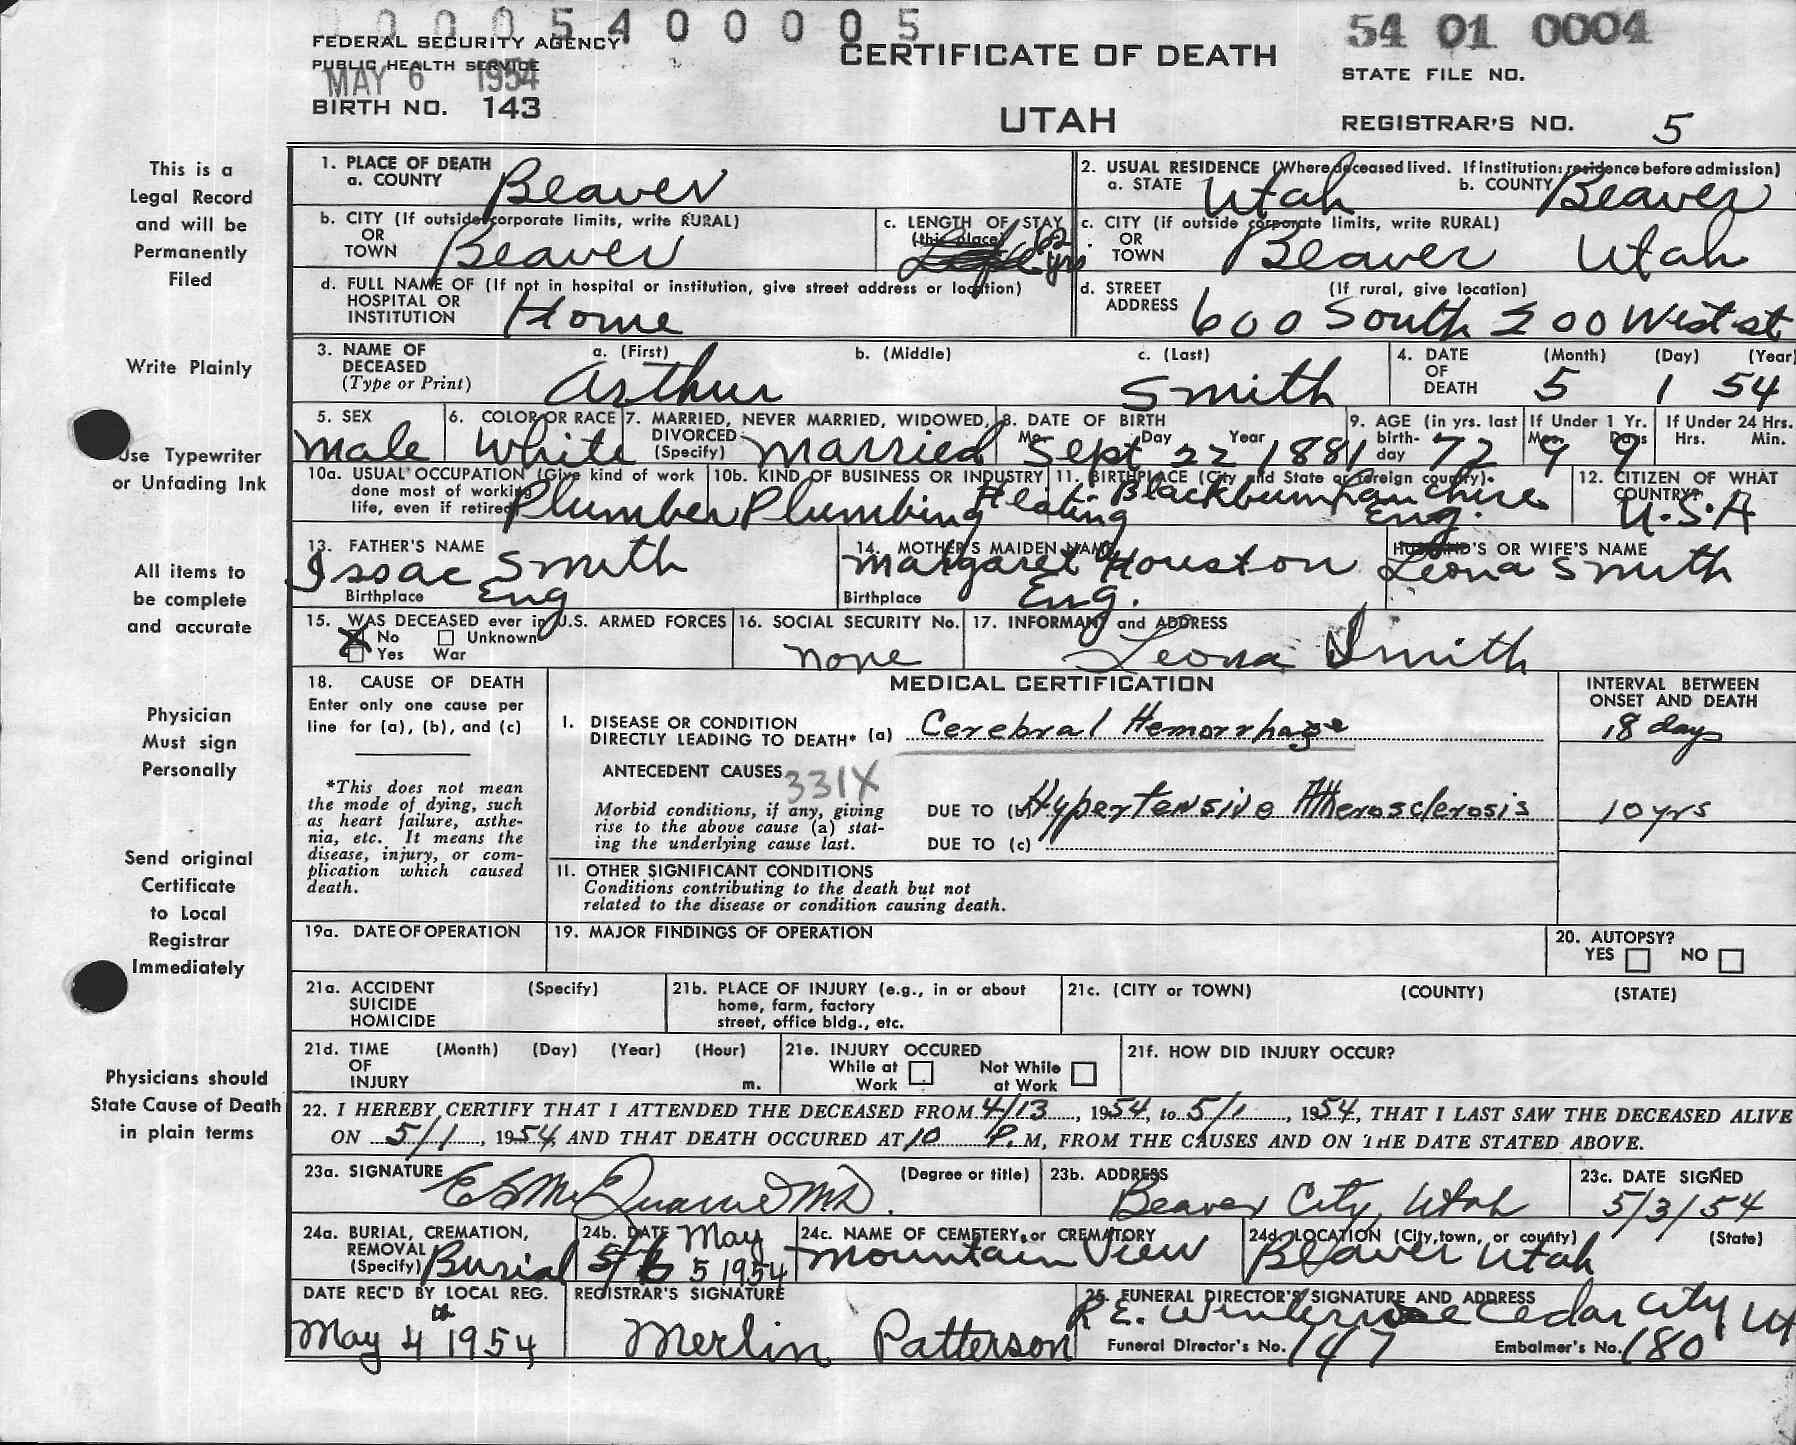 000540005
54 01 0004
FEDERAL SECURITY AGENCY
PUBLIC HEALTH SERVICE
MAY 6 1954
BIRTH NO. 143
CERTIFICATE OF DEATH
UTAH
STATE FILE NO.
REGISTRAR'S NO. 5
This is a
Legal Record
and will be
Permanently
Filed
Write Plainly
Use Typewriter
or Unfading Ink
All items to
be complete
and accurate
Physician
Must sign
Personally
Send original
Certificate
to Local
Registrar
Immediately
Physicians should
State Cause of Death
in plain terms
1. PLACE OF DEATH
a. COUNTY Beaver
2. USUAL RESIDENCE (Where deceased lived. If institution: residence before admission)
a. STATE Utah b. COUNTY Beaver
b. CITY (If outside corporate limits, write RURAL)
OR
TOWN Beaver
c. LENGTH OF STAY
(this place) 62 yrs
c. CITY (if outside corporate limits, write RURAL)
OR
TOWN Beaver Utah
d. FULL NAME OF (If not in hospital or institution, give street address or location)
HOSPITAL OR
INSTITUTION Home
d. STREET (If rural, give location)
ADDRESS 600 South 200 West st
3. NAME OF
DECEASED
(Type or Print)
a. (First) b. (Middle) c. (Last)
Arthur Smith
4. DATE OF DEATH (Month) (Day) (Year)
5 1 54
5. SEX
Male
6. COLOR OR RACE
White
7. MARRIED, NEVER MARRIED, WIDOWED,
DIVORCED
(Specify) Married
8. DATE OF BIRTH
Mo. Day Year
Sept 22 1881
9. AGE (in yrs. last
birth-
day 72
If Under 1 Yr.
Mos. Days
9 9
If Under 24 Hrs.
Hrs. Min.
10a. USUAL OCCUPATION (Give kind of work
done most of working
life, even if retired Plumber
10b. KIND OF BUSINESS OR INDUSTRY
Plumbing Heating
11. BIRTHPLACE (City and State or foreign county).
Blackburn Lanchire
Eng.
12. CITIZEN OF WHAT
COUNTRY?
U.S.A
13. FATHER'S NAME
Issac Smith
Birthplace Eng
14. MOTHER'S MAIDEN NAME
Margaret Houston
Birthplace Eng.
HUSBAND'S OR WIFE'S NAME
Leona Smith
15. WAS DECEASED ever in U.S. ARMED FORCES
No Unknown
Yes War
16. SOCIAL SECURITY No.
none
17. INFORMANT and ADDRESS
Leona Smith
18. CAUSE OF DEATH
Enter only one cause per
line for (a), (b), and (c)
*This does not mean
the mode of dying, such
as heart failure, asthe-
nia, etc. It means the
disease, injury, or com-
plication which caused
death.
MEDICAL CERTIFICATION
INTERVAL BETWEEN
ONSET AND DEATH
I. DISEASE OR CONDITION
DIRECTLY LEADING TO DEATH* (a) Cerebral Hemorrhage
18 days
ANTECEDENT CAUSES 331X
Morbid conditions, if any, giving
rise to the above cause (a) stat-
ing the underlying cause last.
DUE TO (b) Hypertensive Atherosclerosis
10 yrs
DUE TO (c)
11. OTHER SIGNIFICANT CONDITIONS
Conditions contributing to the death but not
related to the disease or condition causing death.
19a. DATE OF OPERATION
19. MAJOR FINDINGS OF OPERATION
20. AUTOPSY?
YES NO
21a. ACCIDENT (Specify)
SUICIDE
HOMICIDE
21b. PLACE OF INJURY (e.g., in or about
home, farm, factory
street, office bldg., etc.
21c. (CITY or TOWN) (COUNTY) (STATE)
21d. TIME (Month) (Day) (Year) (Hour)
OF
INJURY m.
21e. INJURY OCCURED
While at Work Not While at Work
21f. HOW DID INJURY OCCUR?
22. I HEREBY CERTIFY THAT I ATTENDED THE DECEASED FROM 4/13, 1954, to 5/1, 1954, THAT I LAST SAW THE DECEASED ALIVE
ON 5/1, 1954, AND THAT DEATH OCCURED AT 10 P.M, FROM THE CAUSES AND ON THE DATE STATED ABOVE.
23a. SIGNATURE (Degree or title)
M.D.
23b. ADDRESS
Beaver City, Utah
23c. DATE SIGNED
5/3/54
24a. BURIAL, CREMATION,
REMOVAL
(Specify) Burial
24b. DATE May
5 1954
24c. NAME OF CEMETERY, or CREMATORY
Mountain View
24d. LOCATION (City, town, or county) (State)
Beaver Utah
DATE REC'D BY LOCAL REG.
May 4th 1954
REGISTRAR'S SIGNATURE
Merlin Patterson
25. FUNERAL DIRECTOR'S SIGNATURE AND ADDRESS
R E. Winterrose Cedar City Ut
Funeral Director's No. 147 Embalmer's No. 180